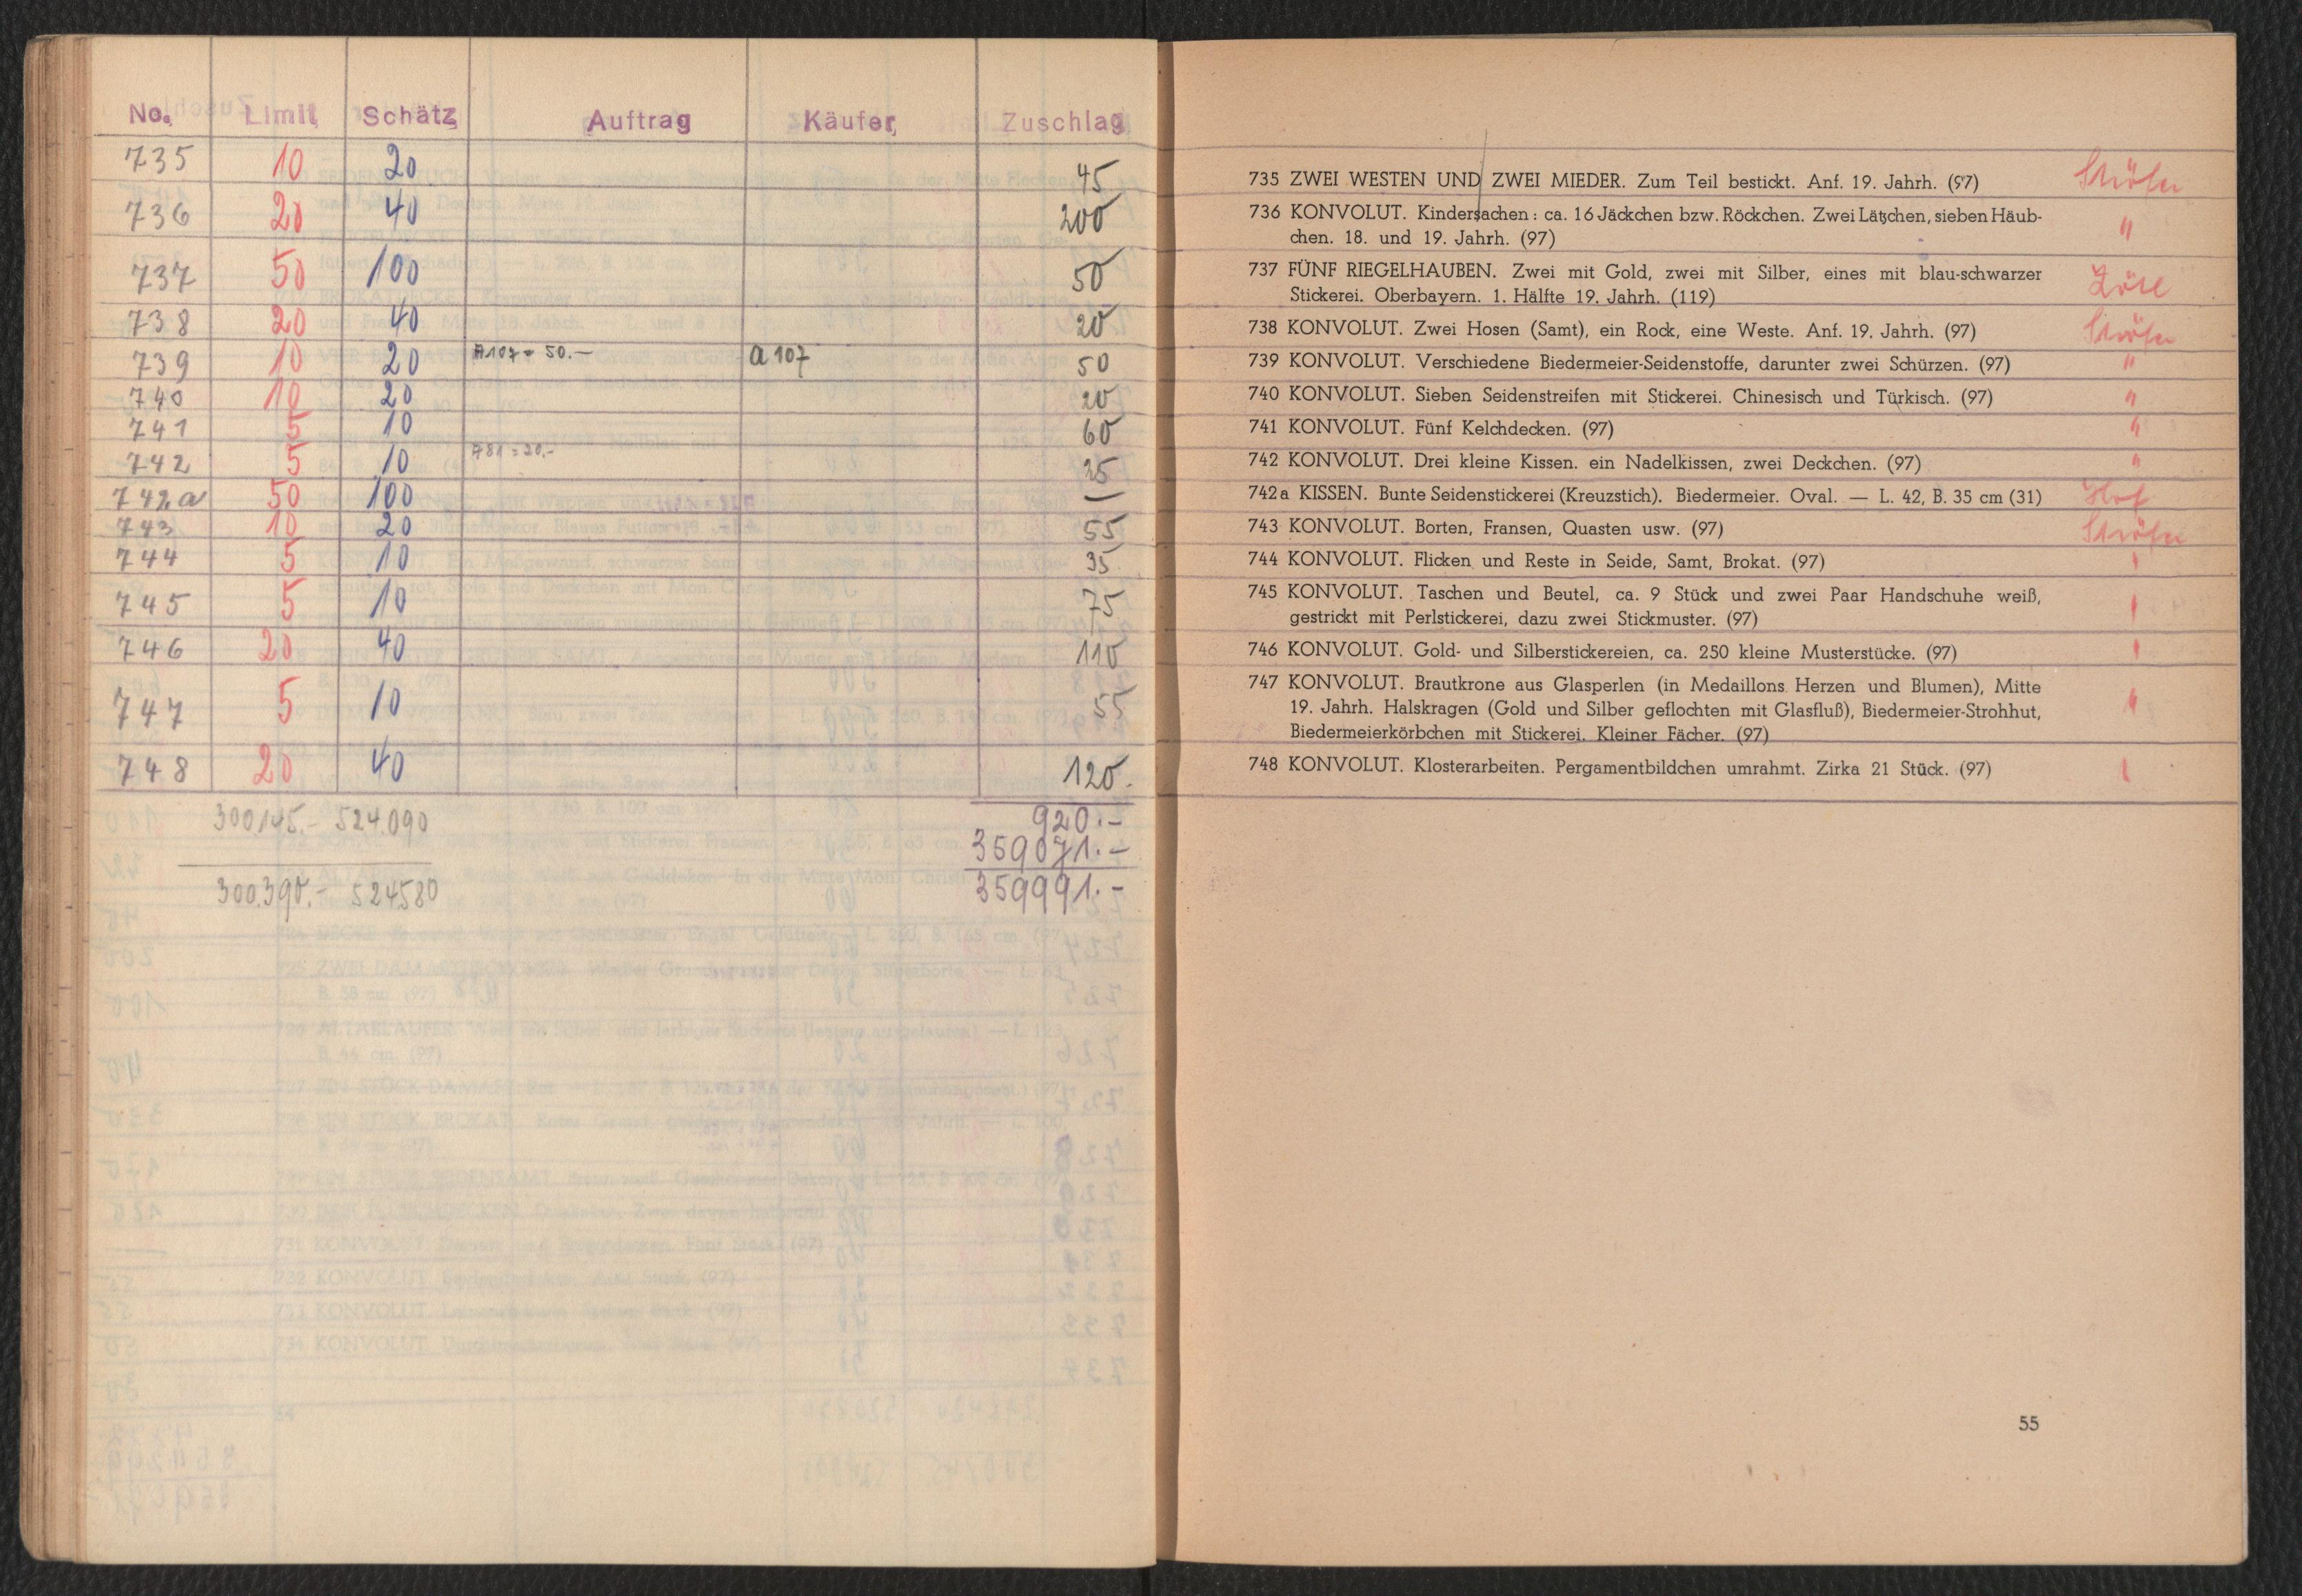 No. Limit Schätz Auftrag Käufer Zuschlag
735 10 20 45
736 20 40 200
737 50 100 50
738 20 40 20
739 10 20 A107 = 50.— a 107 50
740 10 20 20
741 5 10 60
742 5 10 A81 = 20.- 25
742a 50 100 —
743 10 20 55
744 5 10 35
745 5 10 75
746 20 40 110
747 5 10 55
748 20 40 120.
300.145.- 524.090 920.-
359071.-
300.390.- 524580 359991.-
735 ZWEI WESTEN UND ZWEI MIEDER. Zum Teil bestickt. Anf. 19. Jahrh. (97)
736 KONVOLUT. Kindersachen: ca. 16 Jäckchen bzw. Röckchen. Zwei Lätzchen, sieben Häub- "
chen. 18. und 19. Jahrh. (97)
737 FÜNF RIEGELHAUBEN. Zwei mit Gold, zwei mit Silber, eines mit blau-schwarzer
Stickerei. Oberbayern. 1. Hälfte 19. Jahrh. (119)
738 KONVOLUT. Zwei Hosen (Samt), ein Rock, eine Weste. Anf. 19. Jahrh. (97)
739 KONVOLUT. Verschiedene Biedermeier-Seidenstoffe, darunter zwei Schürzen. (97) "
740 KONVOLUT. Sieben Seidenstreifen mit Stickerei. Chinesisch und Türkisch. (97) "
741 KONVOLUT. Fünf Kelchdecken. (97) "
742 KONVOLUT. Drei kleine Kissen. ein Nadelkissen, zwei Deckchen. (97) "
742a KISSEN. Bunte Seidenstickerei (Kreuzstich). Biedermeier. Oval. — L. 42, B. 35 cm (31)
743 KONVOLUT. Borten, Fransen, Quasten usw. (97)
744 KONVOLUT. Flicken und Reste in Seide, Samt, Brokat. (97)
745 KONVOLUT. Taschen und Beutel, ca. 9 Stück und zwei Paar Handschuhe weiß,
gestrickt mit Perlstickerei, dazu zwei Stickmuster. (97)
746 KONVOLUT. Gold- und Silberstickereien, ca. 250 kleine Musterstücke. (97)
747 KONVOLUT. Brautkrone aus Glasperlen (in Medaillons Herzen und Blumen), Mitte
19. Jahrh. Halskragen (Gold und Silber geflochten mit Glasfluß), Biedermeier-Strohhut, "
Biedermeierkörbchen mit Stickerei. Kleiner Fächer. (97)
748 KONVOLUT. Klosterarbeiten. Pergamentbildchen umrahmt. Zirka 21 Stück. (97)
55